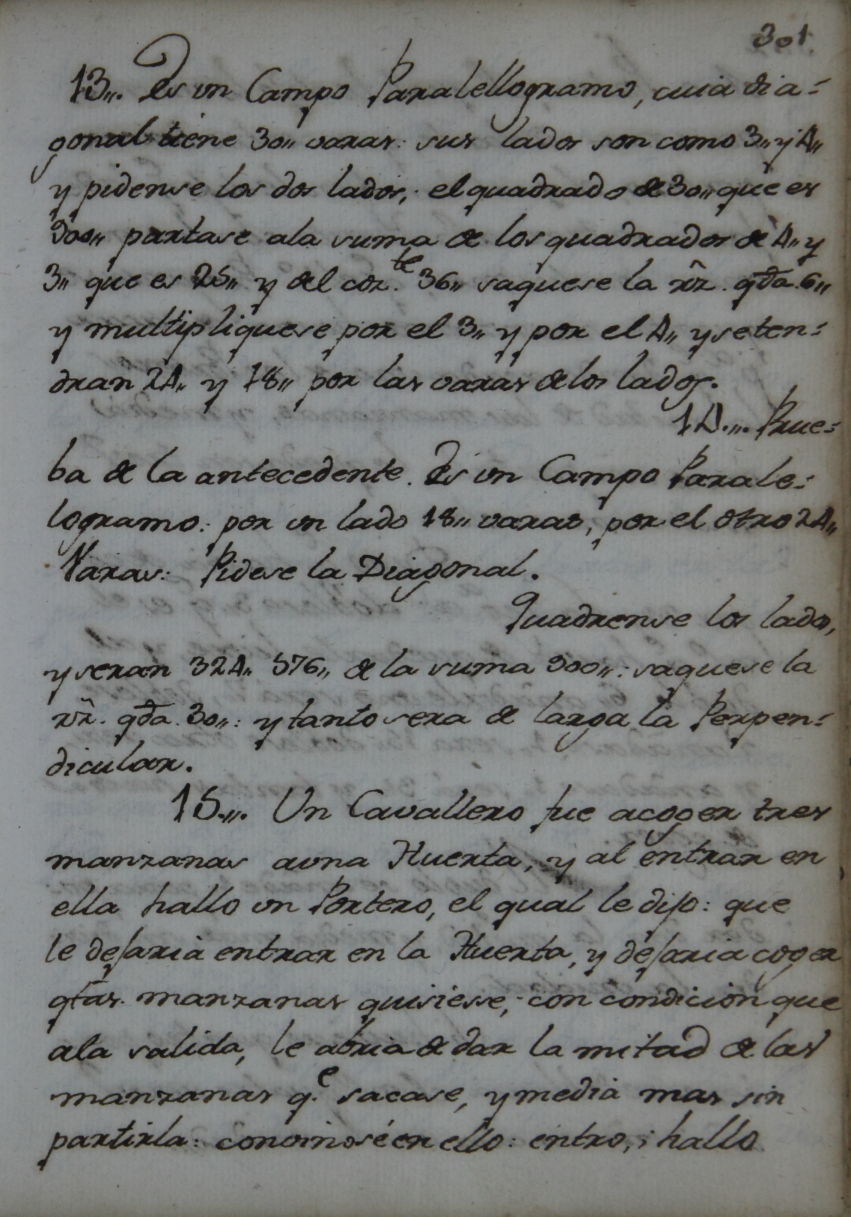 301.
13,,. Es un Campo Paralellogramo, cuia dia-
gonal tiene 30,, varas: sus lados son como 3,, y 4,,
y pidense los dos lados,. el quadrado de 30,, que es
900,, partase ala suma de los quadrados de 4,, y
3,, que es 25,, y del coz.te 36,, saquese la rz. qda. 6,,
y multipliquese por el 3,, y por el 4,, y se ten-
dran 24,, y 18,, por las varas de los lados.
14.,,. Prue-
ba de la antecedente. Es un Campo Parale-
logramo: por un lado 18,, varas, por el otro 24,,
Varas: Pidese la Diagonal.
Quadrense los lados,
y seran 324,, 576,, de la suma 900,,: saquese la
rz. qda. 30,,: y tanto sera de larga la Perpen-
dicular.
15.,,. Un Cavallero fue acoger tres
manzanas auna Huerta, y al entrar en
ella hallo un Portero, el qual le dijo: que
le dejaria entrar en la Huerta, y dejaria coger
qtas. manzanas quisiesse, con condicion que
ala salida, le abria de dar la mitad de las
manzanas q.e sacase, y media mas sin
partirla: convinose en ello: entro, i hallo